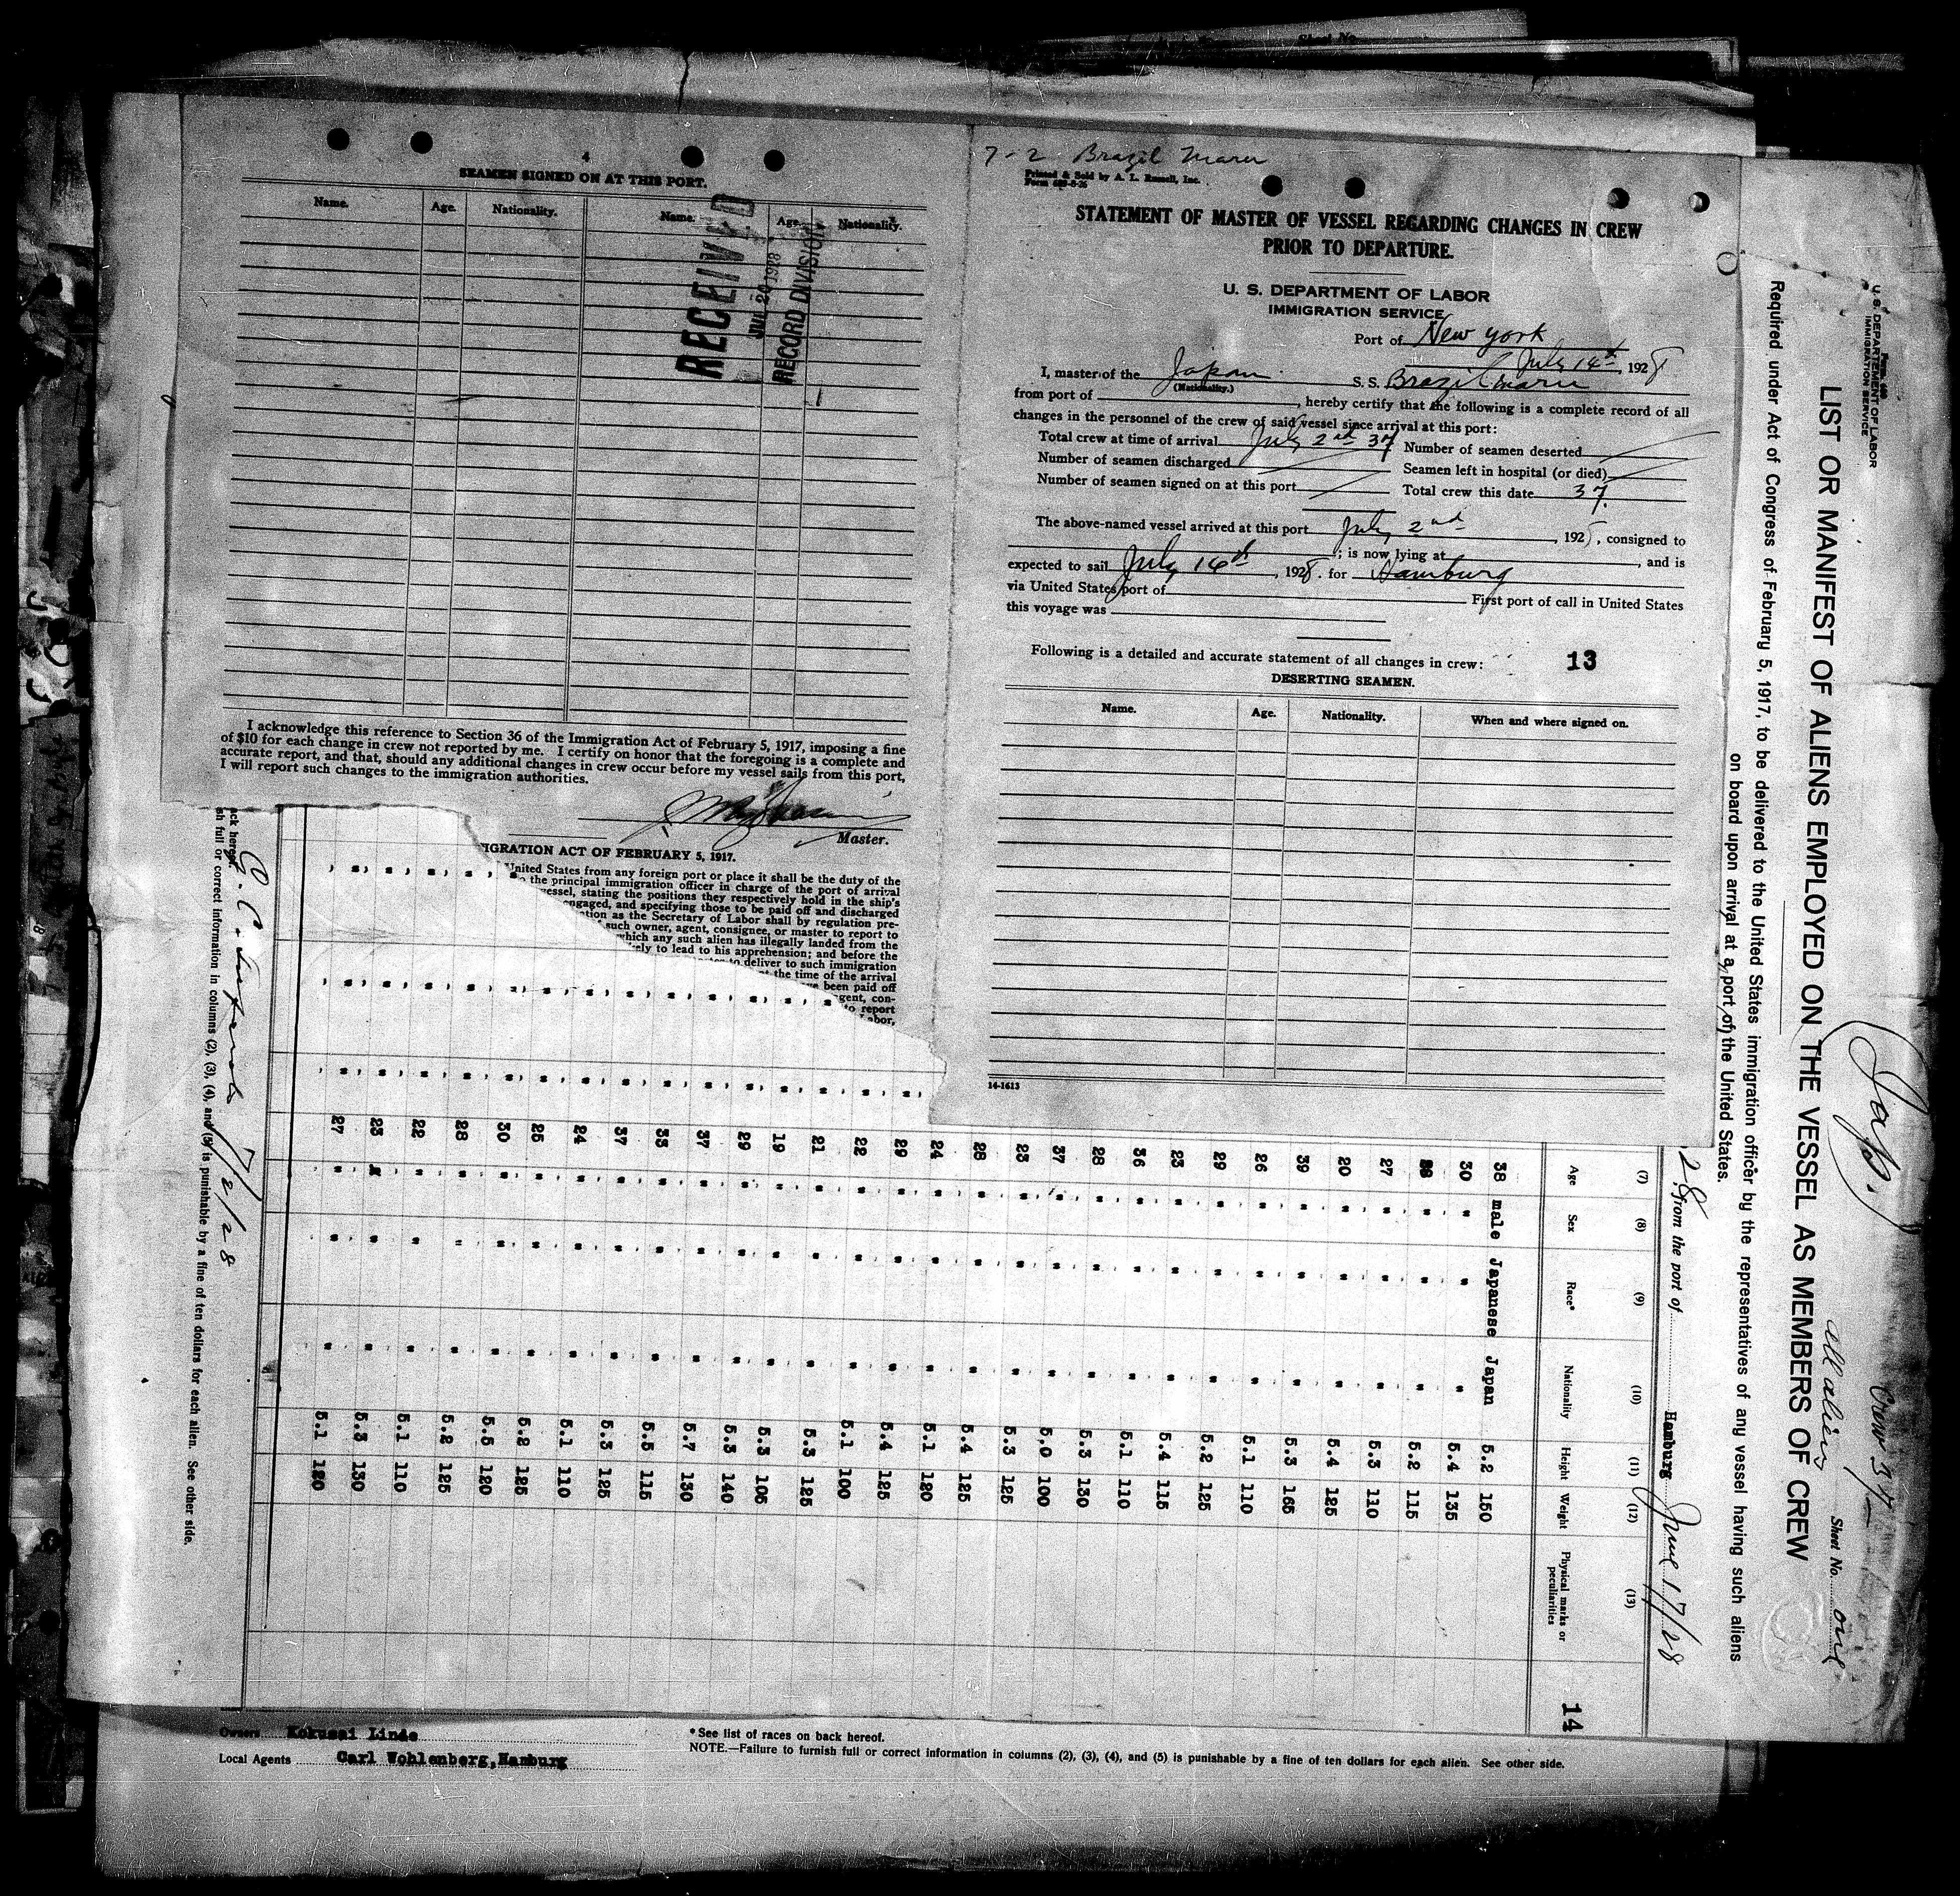 Sheet No.
4
SEAMEN SIGNED ON AT THIS PORT.
Name. Age. Nationality. Name. Age. Nationality.
RECEIVED
JUL 20 1928
RECORD DIVISION
I acknowledge this reference to Section 36 of the Immigration Act of February 5, 1917, imposing a fine
of $10 for each change in crew not reported by me. I certify on honor that the foregoing is a complete and
accurate report, and that, should any additional changes in crew occur before my vessel sails from this port,
I will report such changes to the immigration authorities.
Master.
IGRATION ACT OF FEBRUARY 5, 1917.
United States from any foreign port or place it shall be the duty of the
the principal immigration officer in charge of the port of arrival
essel, stating the positions they respectively hold in the ship's
engaged, and specifying those to be paid off and discharged
tion as the Secretary of Labor shall by regulation pre-
such owner, agent, consignee, or master to report to
which any such alien has illegally landed from the
ely to lead to his apprehension; and before the
to deliver to such immigration
the time of the arrival
been paid off
gent, con-
to report
abor,
7-2 Brazil Maru
Printed & Sold by A. L. Russell, Inc.
STATEMENT OF MASTER OF VESSEL REGARDING CHANGES IN CREW
PRIOR TO DEPARTURE.
U. S. DEPARTMENT OF LABOR
IMMIGRATION SERVICE
Port of New York
July 14th, 1928
I, master of the Japan S. S. Brazil maru
(Nationality.)
from port of , hereby certify that the following is a complete record of all
changes in the personnel of the crew of said vessel since arrival at this port:
Total crew at time of arrival July 2nd 37 Number of seamen deserted
Number of seamen discharged Seamen left in hospital (or died)
Number of seamen signed on at this port Total crew this date 37
The above-named vessel arrived at this port July 2nd , 192 , consigned to
; is now lying at , and is
expected to sail July 14th , 1928. for Hamburg
via United States port of First port of call in United States
this voyage was
Following is a detailed and accurate statement of all changes in crew: 13
DESERTING SEAMEN.
Name. Age. Nationality. When and where signed on.
14-1613
U. S. DEPARTMENT OF LABOR
IMMIGRATION SERVICE
Jap.
Crew 37
all aliens
Sheet No. one
LIST OR MANIFEST OF ALIENS EMPLOYED ON THE VESSEL AS MEMBERS OF CREW
Required under Act of Congress of February 5, 1917, to be delivered to the United States immigration officer by the representatives of any vessel having such aliens
on board upon arrival at a port of the United States.
28, from the port of Hamburg June 17/28
(7) (8) (9) (10) (11) (12) (13)
Age Sex Race* Nationality Height Weight Physical marks or peculiarities
14
38 male Japanese Japan 5.2 150
30 " " " 5.4 135
" " " 5.2 115
27 " " " 5.3 110
20 " " " 5.4 125
39 " " " 5.3 165
26 " " " 5.1 110
29 " " " 5.2 125
23 " " " 5.4 115
36 " " " 5.1 110
28 " " " 5.3 130
37 " " " 5.0 100
23 " " " 5.3 125
28 " " " 5.4 125
24 " " " 5.1 120
29 " " " 5.4 125
22 " " " 5.1 100
21 " " " 5.3 125
19 " " " 5.3 105
29 " " " 5.3 140
37 " " " 5.7 130
33 " " " 5.5 115
37 " " " 5.3 125
24 " " " 5.1 110
25 " " " 5.2 125
30 " " " 5.5 120
28 " " " 5.2 125
22 " " " 5.1 110
23 " " " 5.3 130
27 " " " 5.1 120
7/2/28
ack hereof.
sh full or correct information in columns (2), (3), (4), and (5) is punishable by a fine of ten dollars for each alien. See other side.
Owners Kokusai Linde
Local Agents Carl Wohlenberg, Hamburg
*See list of races on back hereof.
NOTE.—Failure to furnish full or correct information in columns (2), (3), (4), and (5) is punishable by a fine of ten dollars for each alien. See other side.